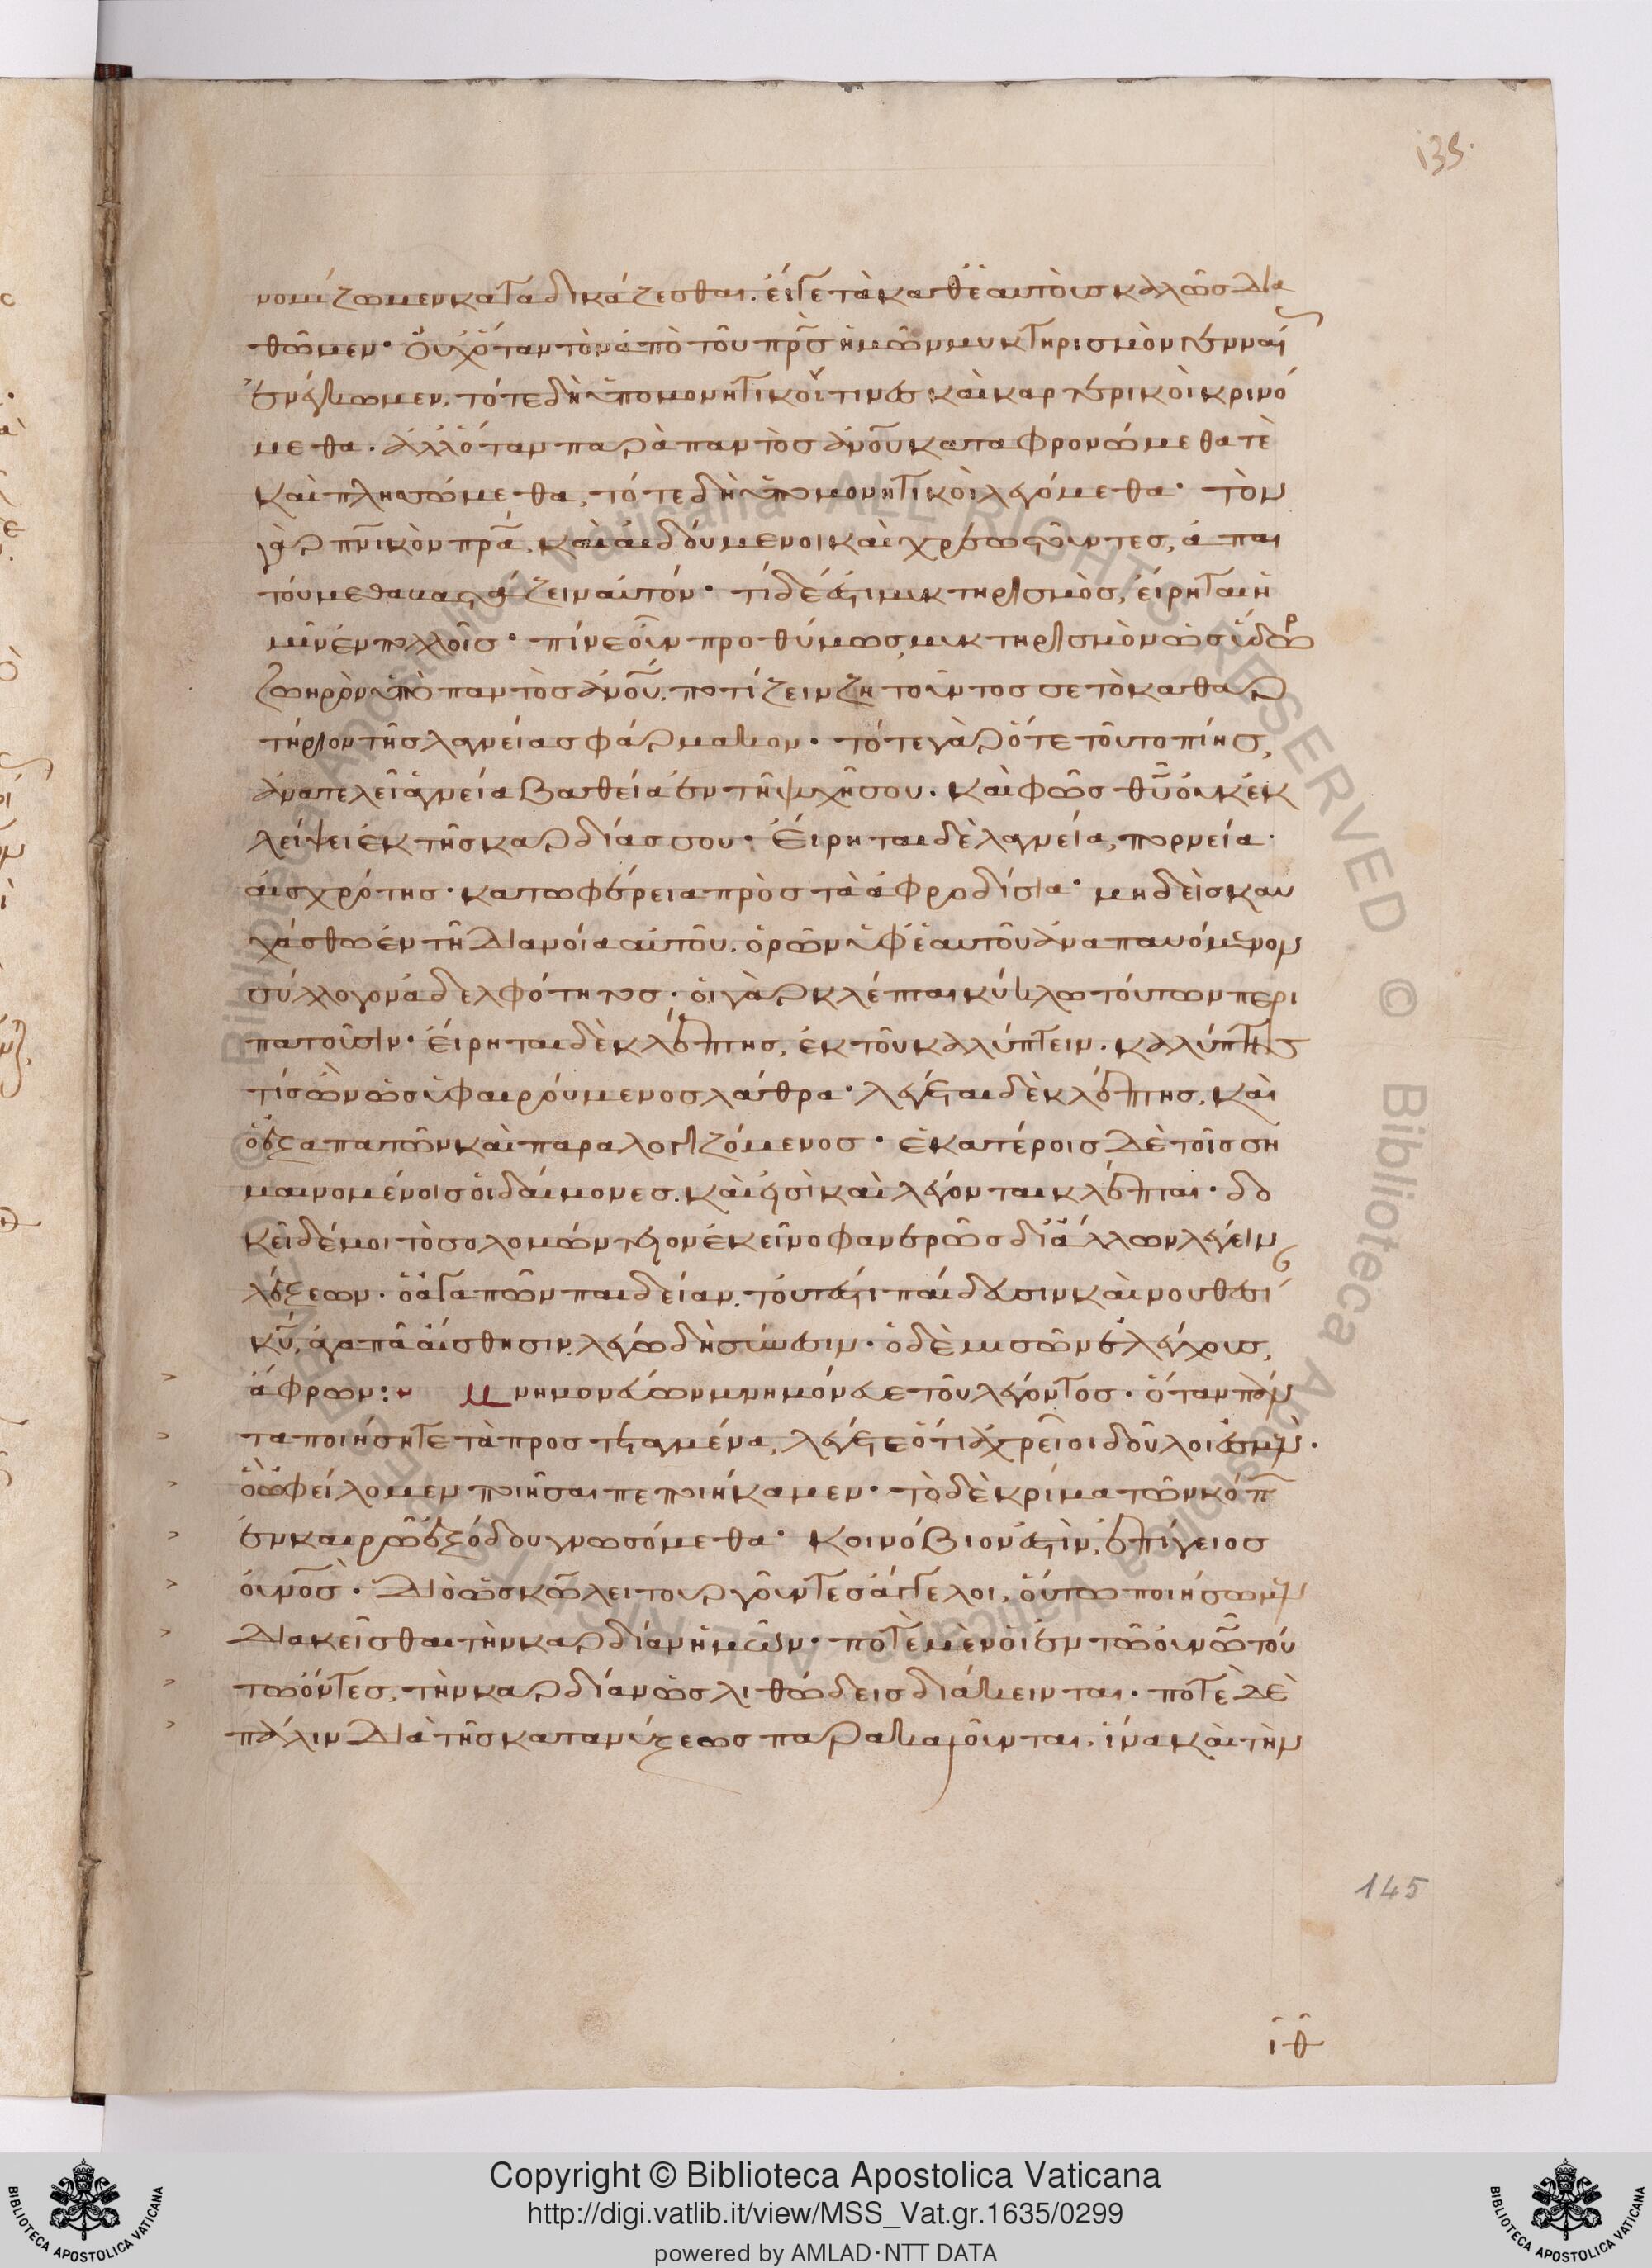 135.
νομίζωμεν καταδικάζεσθαι. εἴγε τὰ καθ' ἑαυτοὺς καλῶς δια
θῶμεν· Οὐχ ὅταν τὸν ἀπὸ τοῦ πρς ἡμῶν μυκτηρισμὸν
ἐνέγκωμεν, τότε δὴ ὑπομονητικοί τινες καὶ καρτερικοὶ κρινό
μεθα. ἀλλ' ὅταν παρὰ παντὸς ἀνου καταφρονώμεθά τε
καὶ πλησώμεθα, τότε δὴ ὑπομονητικοὶ λεγόμεθα· τὸν
γὰρ πνικὸν πρα, καὶ αἰδούμενοι καὶ χρεωστοῦντες, ἀπαι
τούμεθα βαστάζειν αὐτόν· τί δέ ἐστι μυκτηρισμὸς, εἴρηται ἡ
μῖν ἐν πολλοῖς· πίνε οὖν προθύμως, μυκτηρισμὸν ὡς ὕδωρ
ζωηρὸν ὑπὸ παντὸς ἀνου, ποτίζειν ζητοῦντος σε τὸ καθαρ
τήριον τῆς λαγνείας φάρμακον· τότε γὰρ ὅτε τοῦτο πίῃς,
ἀνατελεῖ ἁγνεία βαθεία ἐν τῆ ψυχῆ σου. καὶ φῶς θυ οὐκ ἐκ
λείψει ἐκ τῆς καρδίας σου· Εἴρηται δὲ λαγνεία, πορνεία·
αἰσχρότης· κατωφέρεια πρὸς τὰ ἀφροδίσια· μηδεὶς καυ
χάσθω ἐν τῆ διανοία αὐτοῦ. ὁρῶν ὑφ' ἑαυτοῦ ἀναπαυόμενον
σύλλογον ἀδελφότητος· οἱ γὰρ κλέπται κύκλω τούτων περι
πατοῦσιν· εἴρηται δὲ κλέπτης, ἐκ τοῦ καλύπτειν. καλύπτης
τίς ὢν ὡς ὑφαιρούμενος λάθρα· λέγεται δὲ κλέπτης, καὶ
ὁ ἐξαπατῶν καὶ παραλογιζόμενος· ἑκατέροις δὲ τοῖς ση
μαινομένοις οἱ δαίμονες. καὶ εἰσὶ καὶ λέγονται κλέπται· δο
κεῖ δέ μοι τὸ σολομώντειον ἐκεῖνο φανερῶς δι' ἄλλων λέγειν
λέξεων. ὁ ἀγαπῶν παιδείαν, τουτέστι παίδευσιν καὶ νουθεσί
κυ, ἀγαπᾶ αἴσθησιν, λέγω δὴ σύνεσιν· ὁ δὲ μισῶν ἐλέγχους,
ἄφρων: Μνημονεύων μνημόνευε τοῦ λέγοντος· ὅταν πάν
τα ποιήσητε τὰ προστεταγμένα, λέγετε ὅτι ἀχρεῖοι δοῦλοι ἐσμέν.
ὃ ὠφείλομεν ποιῆσαι πεποιήκαμεν· τὸ δὲ κρίμα τῶν κόπ
ἐν καιρῶ ἐξόδου γνωσόμεθα· κοινόβιον ἐστὶν, ἐπίγειος
ουνος. Διὸ ὡς κω λειτουργοῦντες ἄγγελοι, οὕτω ποιήσωμεν
διακεῖσθαι τὴν καρδίαν ἡμῶν· ποτὲ μὲν οἱ ἐν τῶ ουνω τού
τω ὄντες, τὴν καρδίαν ὡς λιθώδεις διάκεινται· ποτὲ δὲ
πάλιν διὰ τῆς κατανύξεως παρακαλοῦνται, ἵνα καὶ τὴν
145
ιθ
Copyright © Biblioteca Apostolica Vaticana
http://digi.vatlib.it/view/MSS_Vat.gr.1635/0299
powered by AMLAD·NTT DATA